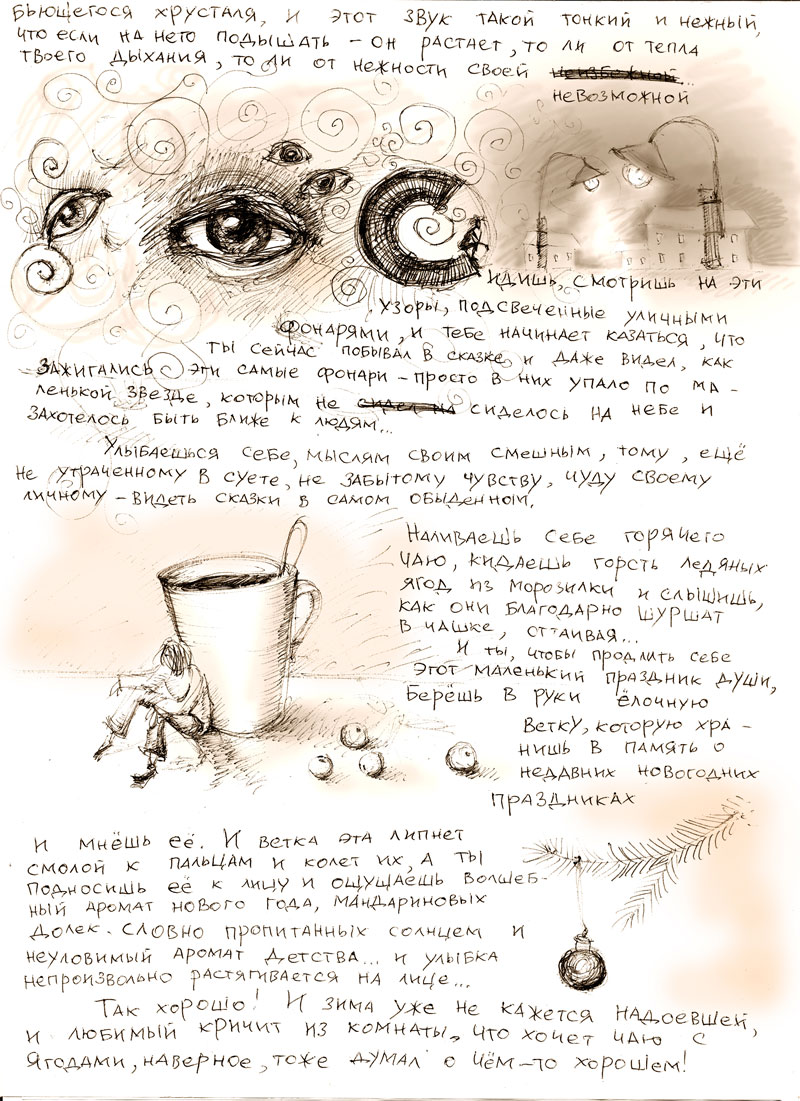 бьющегося хрусталя, и этот звук такой тонкий и нежный,
что если на него подышать – он растает, то ли от тепла
твоего дыхания, то ли от нежности своей неизбежной...
невозможной
Сидишь, смотришь на эти
узоры, подсвеченные уличными
фонарями, и тебе начинает казаться, что
ты сейчас побывал в сказке и даже видел, как
зажигались эти самые фонари – просто в них упало по ма-
ленькой звезде, которым не сидел на сиделось на небе и
захотелось быть ближе к людям...
Улыбаешься себе, мыслям своим смешным, тому, ещё
не утраченному в суете, не забытому чувству, чуду своему
личному – видеть сказки в самом обыденном.
Наливаешь себе горячего
чаю, кидаешь горсть ледяных
ягод из морозилки и слышишь,
как они благодарно шуршат
в чашке, оттаивая...
И ты, чтобы продлить себе
этот маленький праздник души,
берёшь в руки ёлочную
ветку, которую хра-
нишь в память о
недавних новогодних
праздниках
и мнёшь её. И ветка эта липнет
смолой к пальцам и колет их, а ты
подносишь её к лицу и ощущаешь волшеб-
ный аромат нового года, мандариновых
долек. Словно пропитанных солнцем и
неуловимый аромат детства... и улыбка
непроизвольно растягивается на лице...
Так хорошо! И зима уже не кажется надоевшей,
и любимый кричит из комнаты, что хочет чаю с
ягодами, наверное, тоже думал о чём-то хорошем!